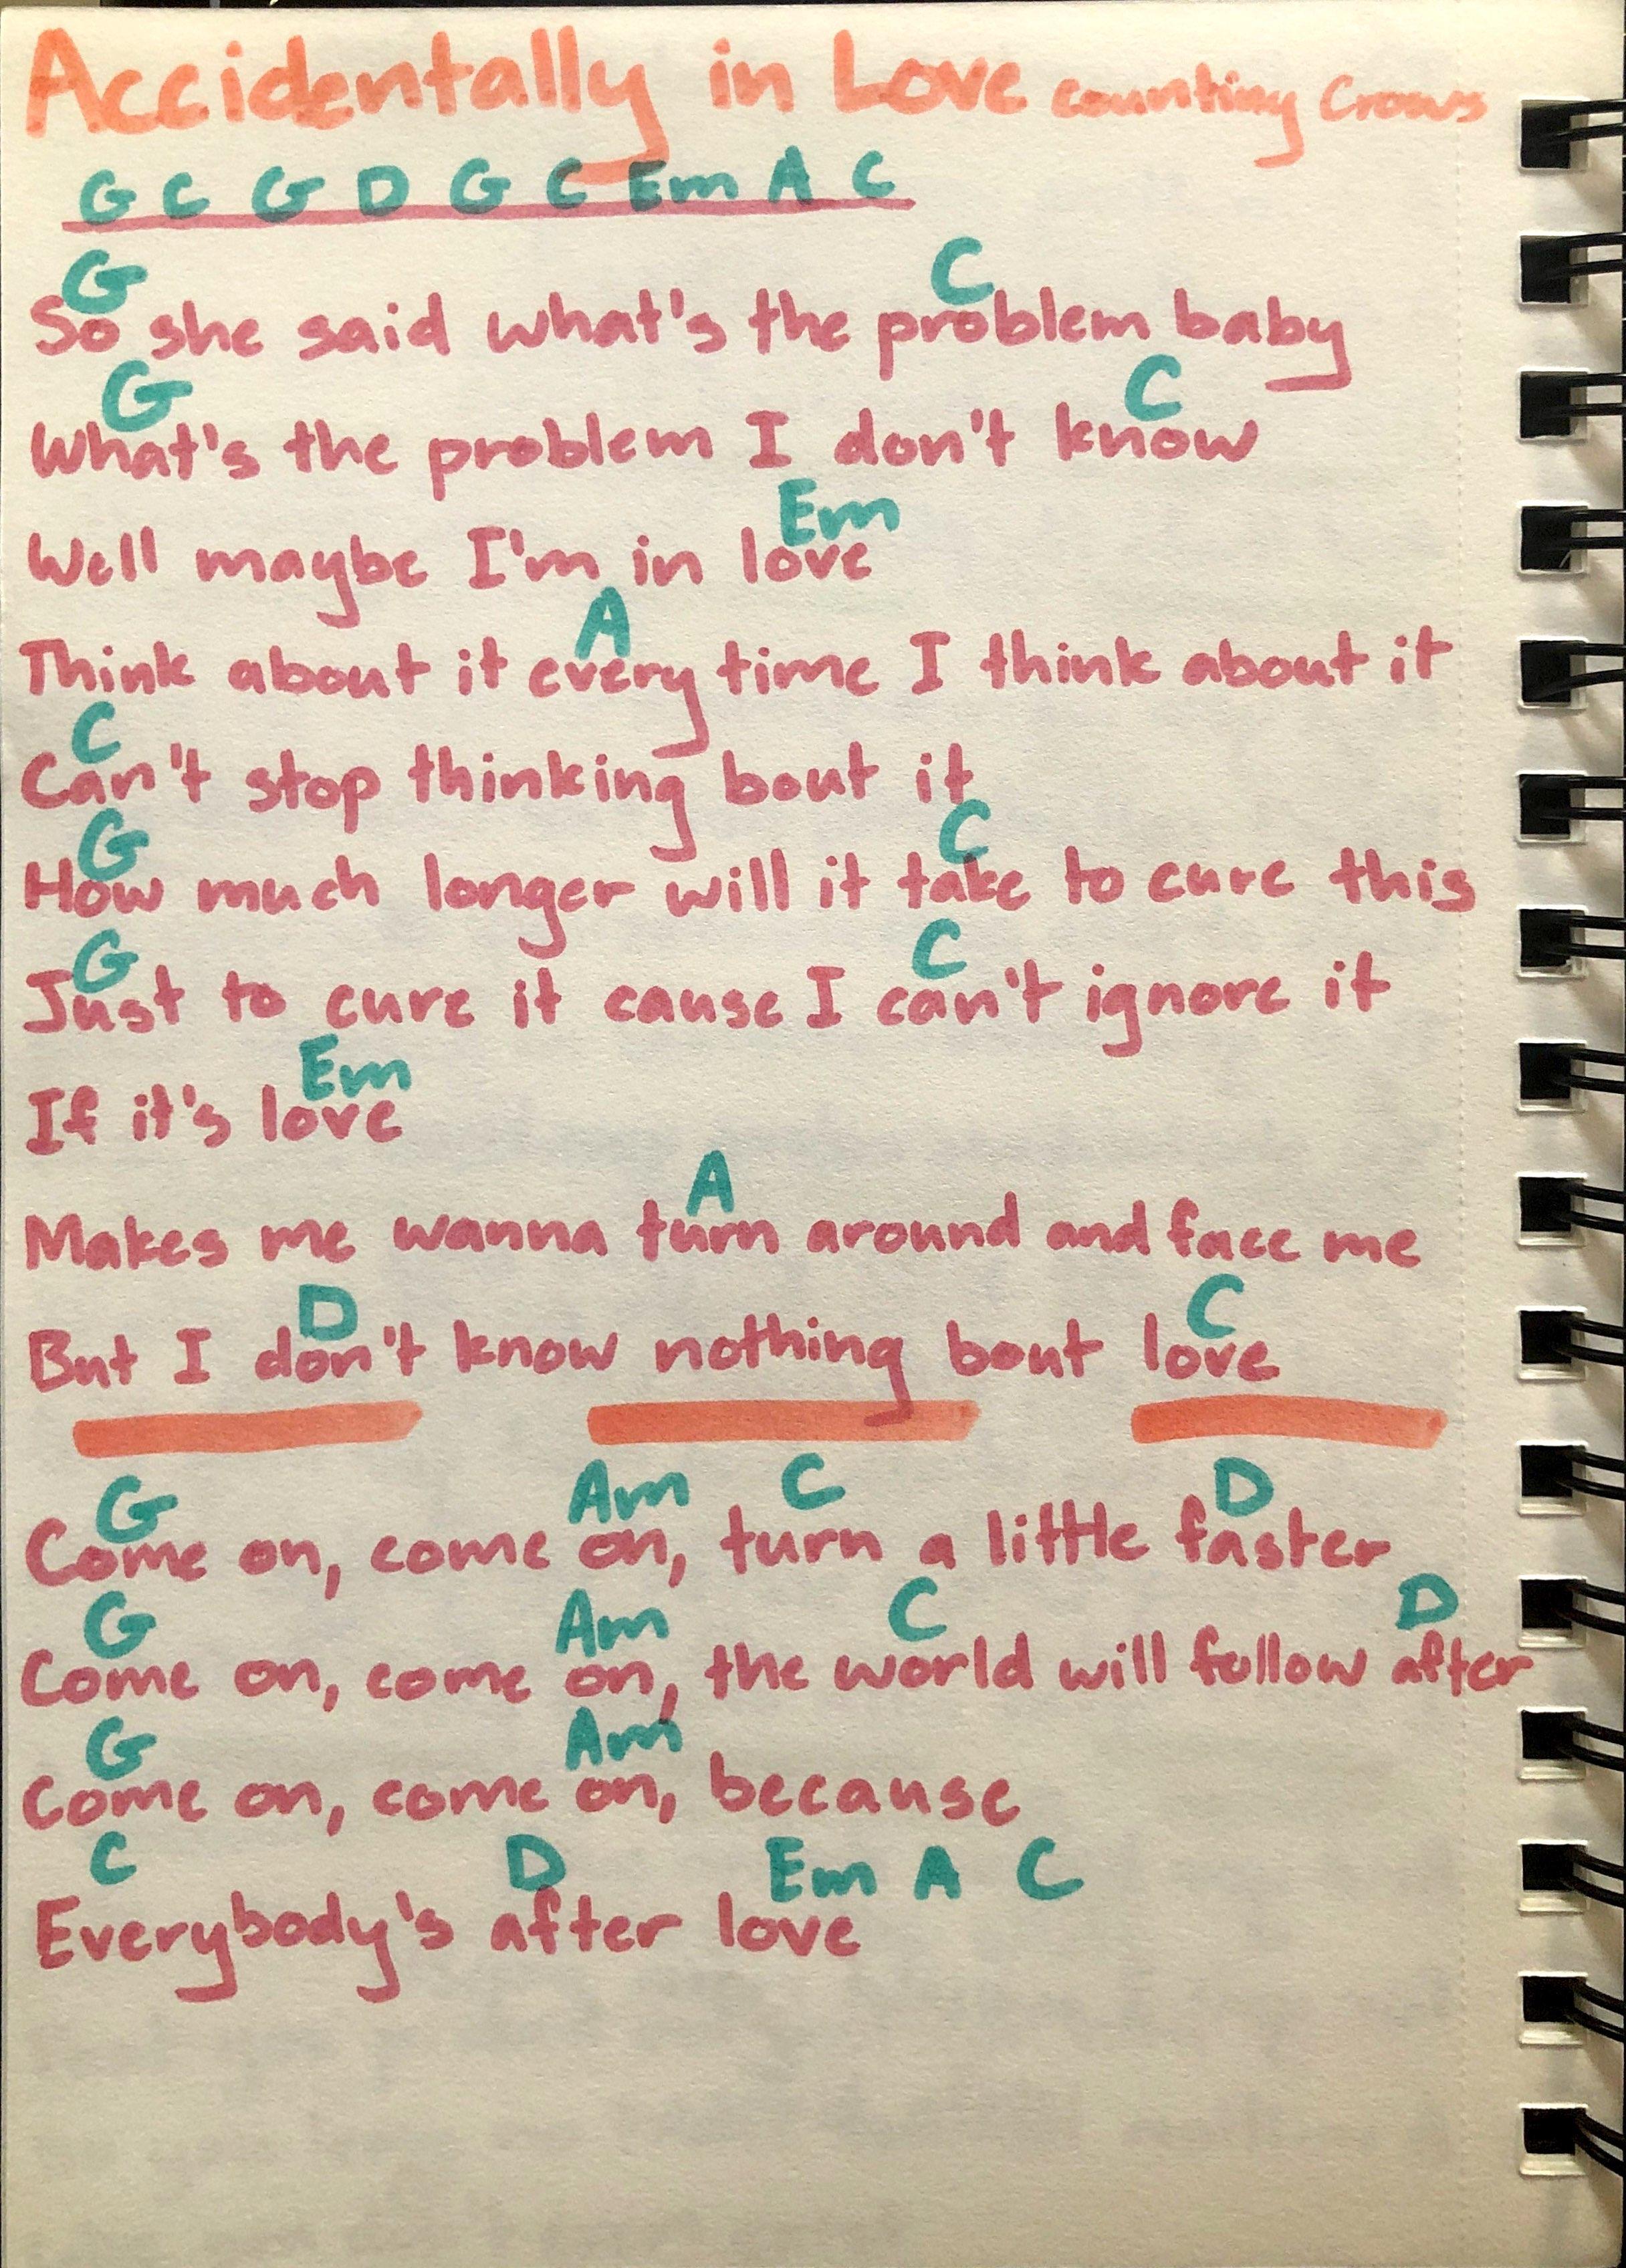 Accidentally in Love counting Crows
G C G D G C Em A C
G C
So she said what's the problem baby
G C
What's the problem I don't know
Em
Well maybe I'm in love
A
Think about it every time I think about it
C
Can't stop thinking bout it
G C
How much longer will it take to cure this
G C
Just to cure it cause I can't ignore it
Em
If it's love
A
Makes me wanna turn around and face me
D C
But I don't know nothing bout love
G Am C D
Come on, come on, turn a little faster
G Am C D
Come on, come on, the world will follow after
G Am
Come on, come on, because
C D Em A C
Everybody's after love